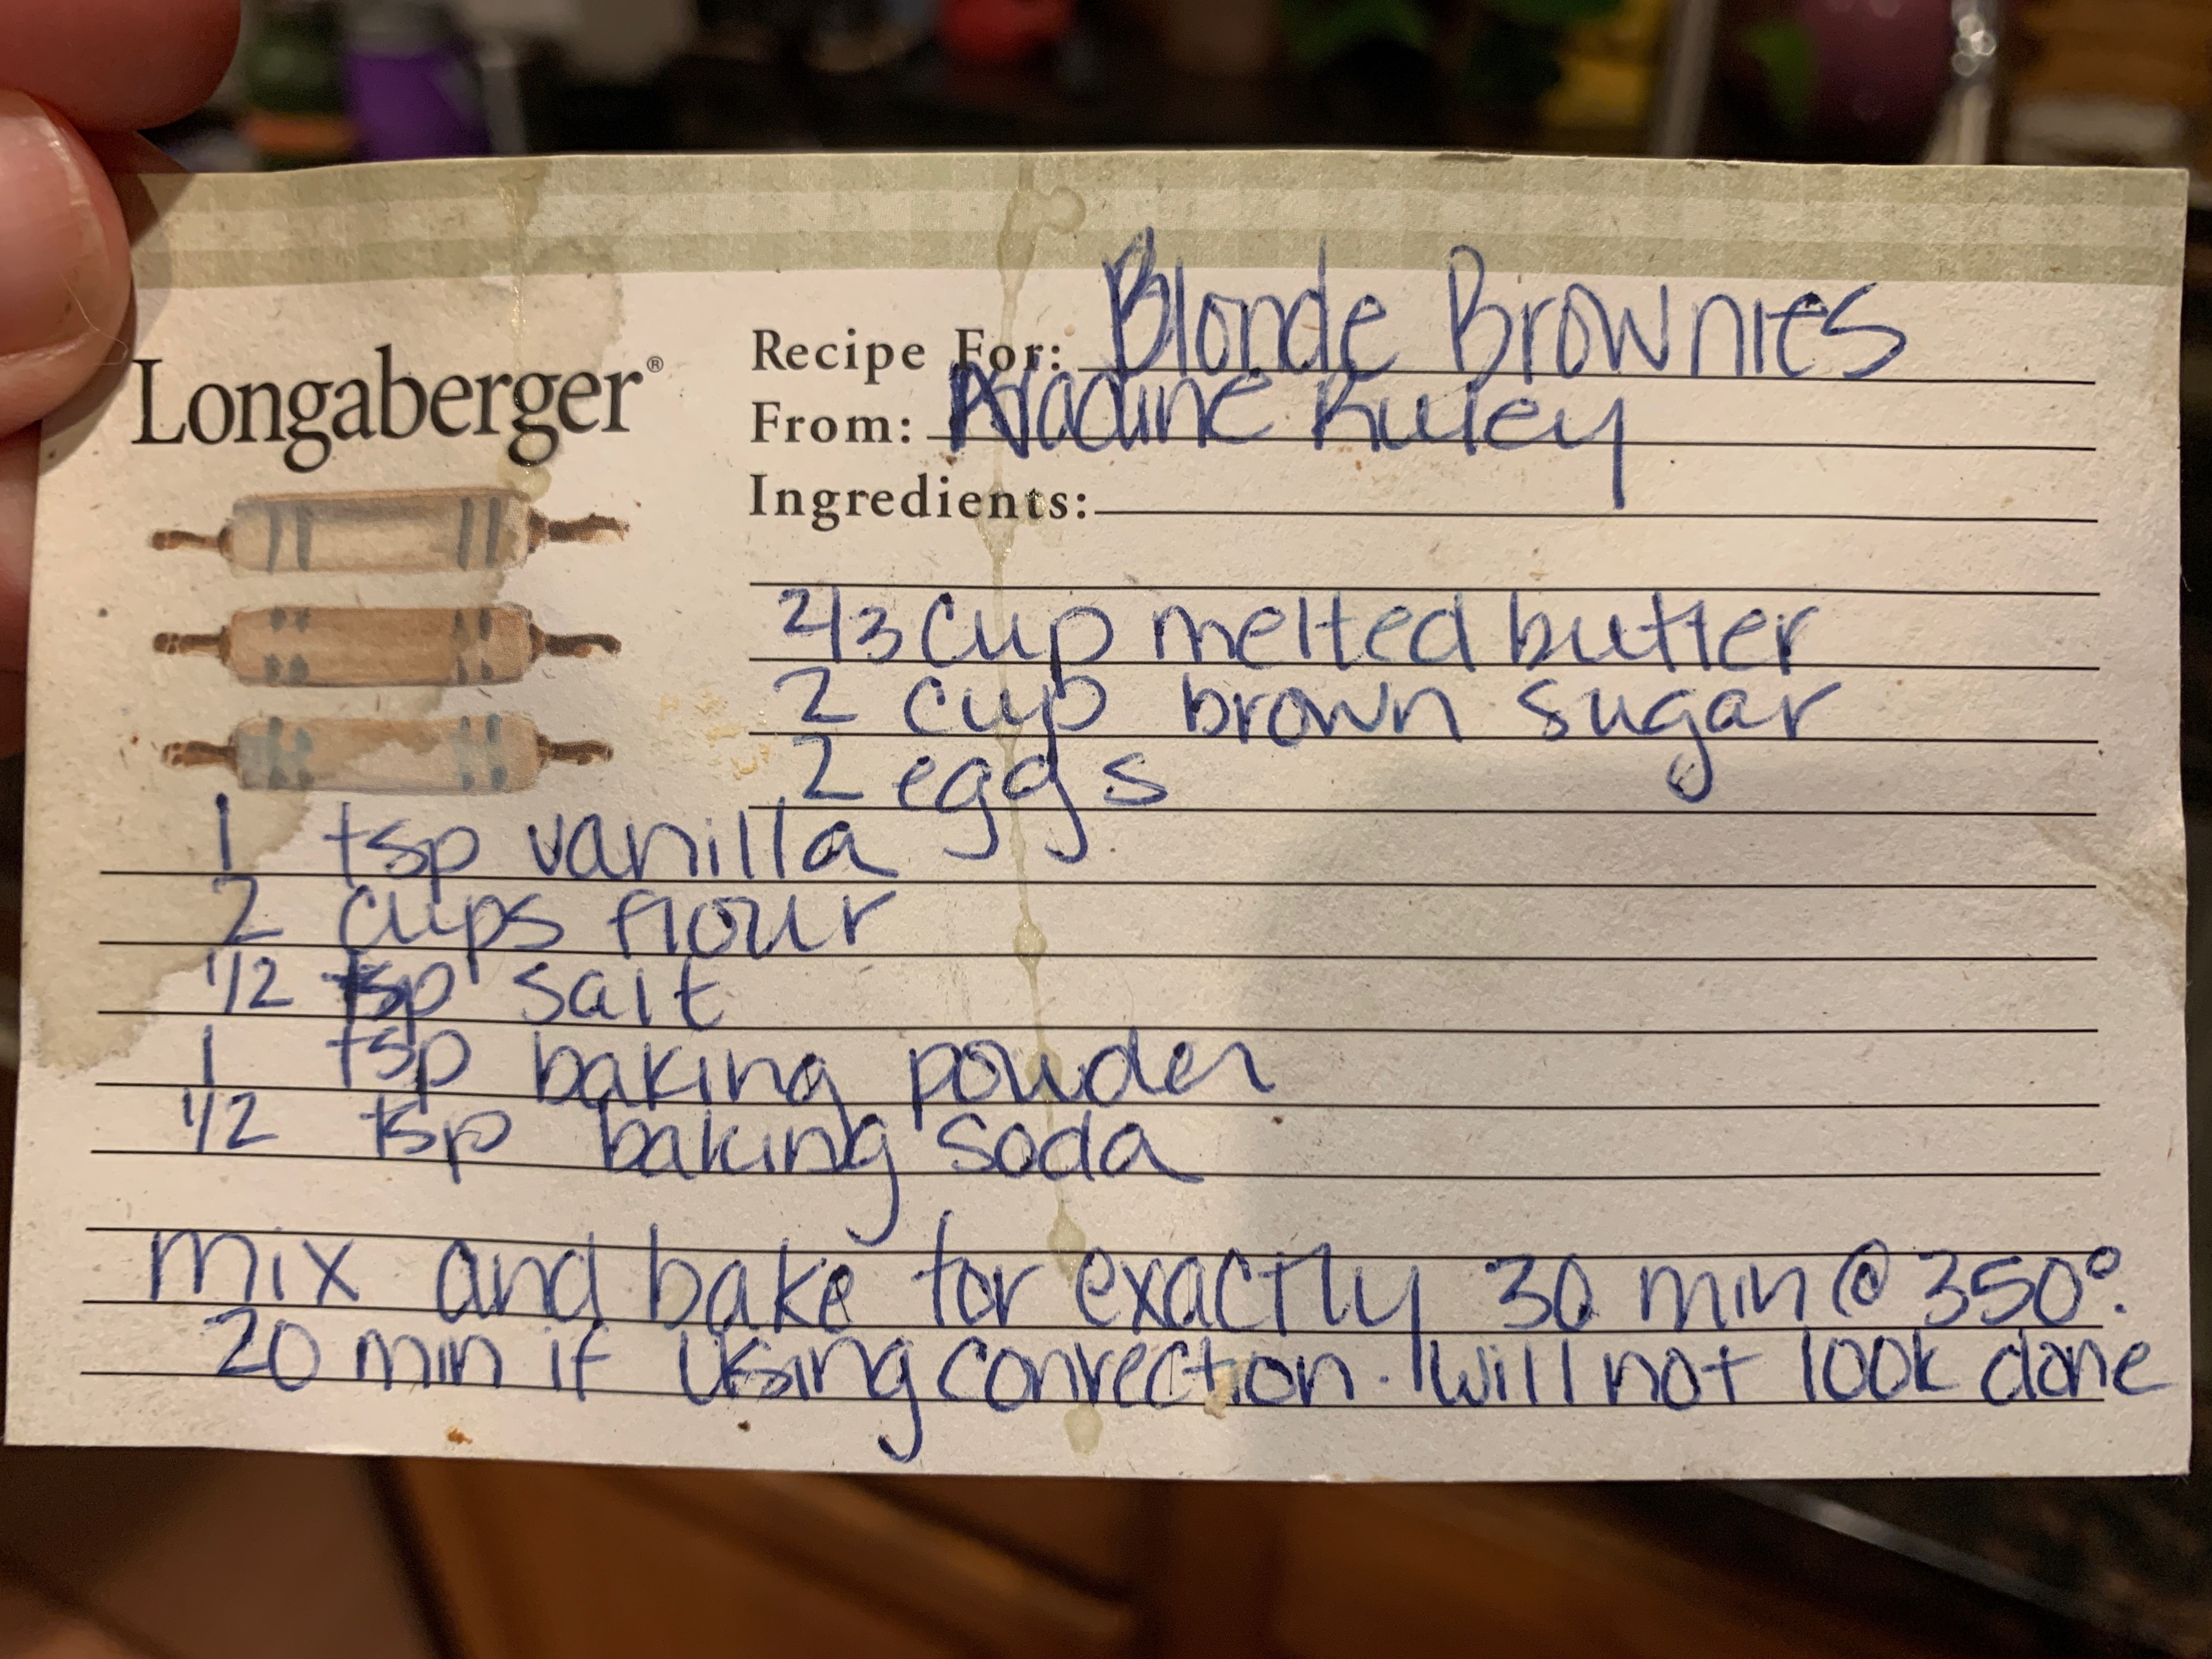 Longaberger®
Recipe For: Blonde Brownies
From: Nadine Ruley
Ingredients:
2/3 cup melted butter
2 cup brown sugar
2 eggs
1 tsp vanilla
2 cups flour
1/2 tsp salt
1 tsp baking powder
1/2 tsp baking soda
mix and bake for exactly 30 min @ 350°.
20 min if using convection. Will not look done